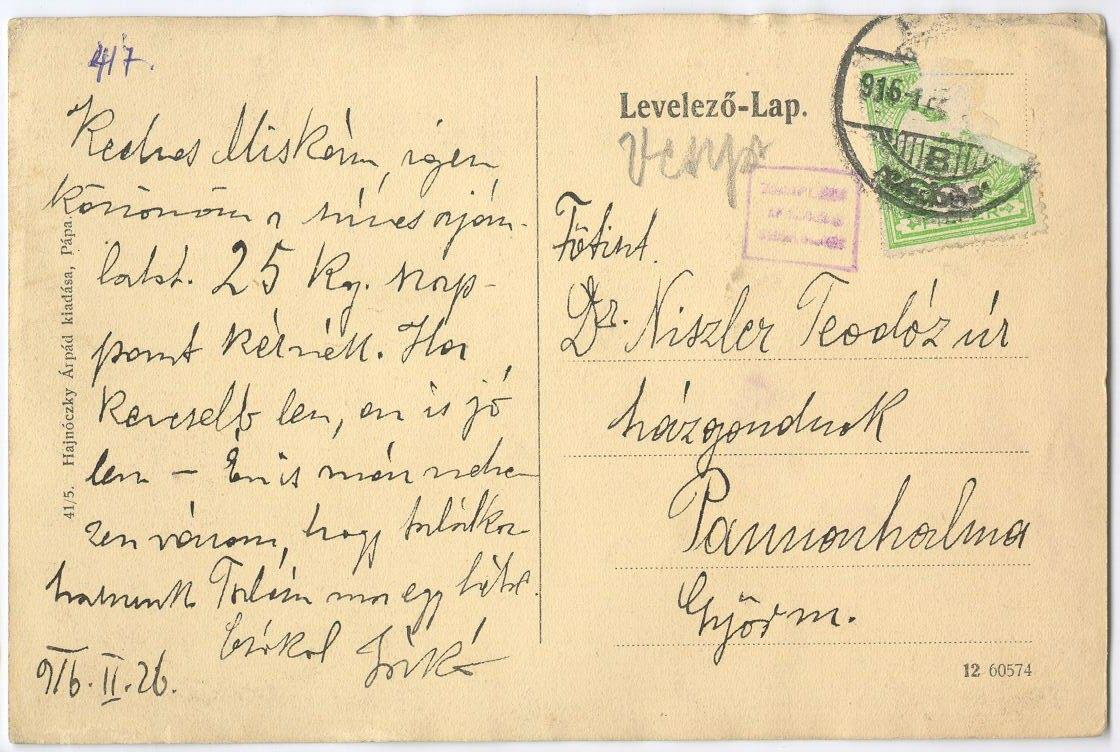 417.
Kedves Miskám, igen
köszönöm a szíves aján-
latot. 25 Kg. nap-
pont kérnék. Ha
kevesebb lesz, az is jó
lesz – Én is már nehe-
zen várom, hogy találkoz-
hatunk. Talán ma egy hete.
Csókol
916. II. 26.
41/5. Hajnóczky Árpád kiadása, Pápa.
Levelező-Lap.
916
B
Főtiszt.
Dr. Niszler Teodóz úr
házgondnok
Pannonhalma
Győr m.
12 60574